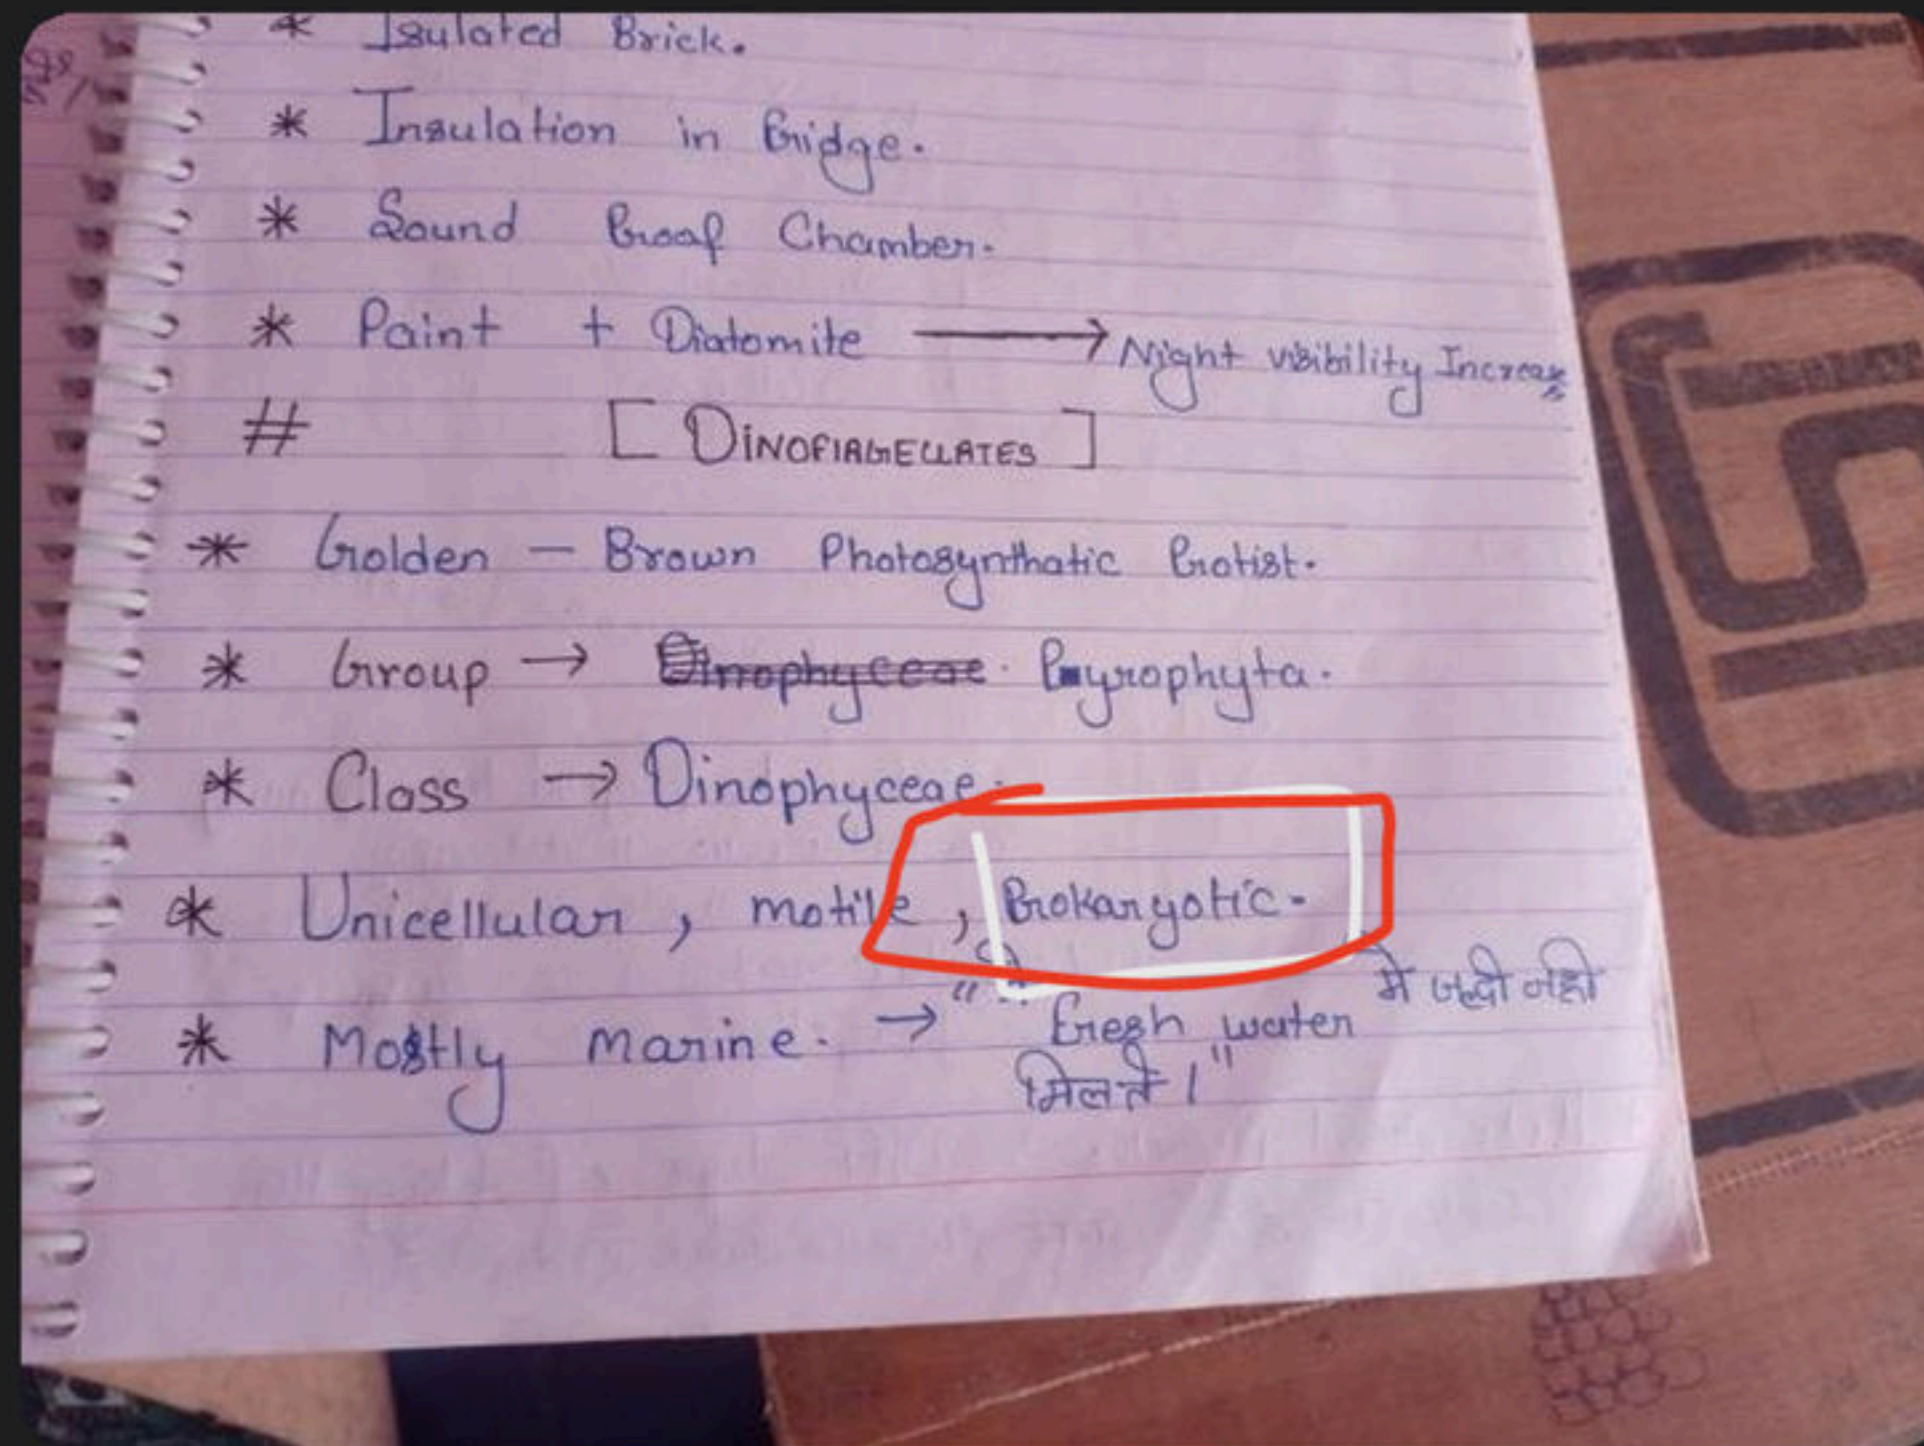 * Isulated Brick.
* Insulation in Fridge.
* Sound Proof Chamber.
* Paint + Diatomite → Night visibility Increase
# [ DINOFlAGELLATES ]
* Golden - Brown Photosynthatic Protist.
* Group → Dinophyceae. Pyrophyta.
* Class → Dinophyceae.
* Unicellular, motile, Prokaryotic.
* Mostly marine. → "ये Fresh water में जल्दी नही
मिलते।"